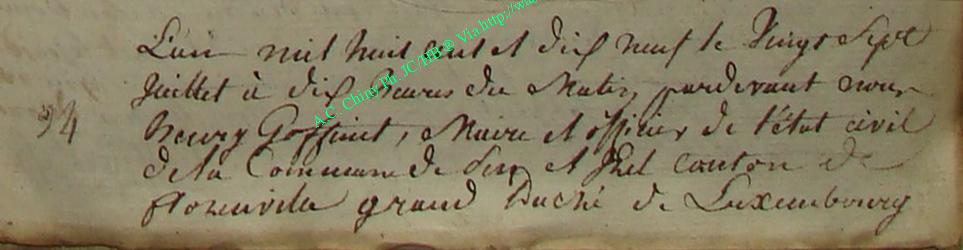 L'an mil huit cent et dix neuf le vingt Sept
Juillet à dix heures du Matin, pardevant nous
94
henry Goffinet, Maire et officier de l'état civil
de la Commune de et canton de
florenville grand Duché de Luxembourg
A.C. Chiny Ph. JC/HB ® Via http://w